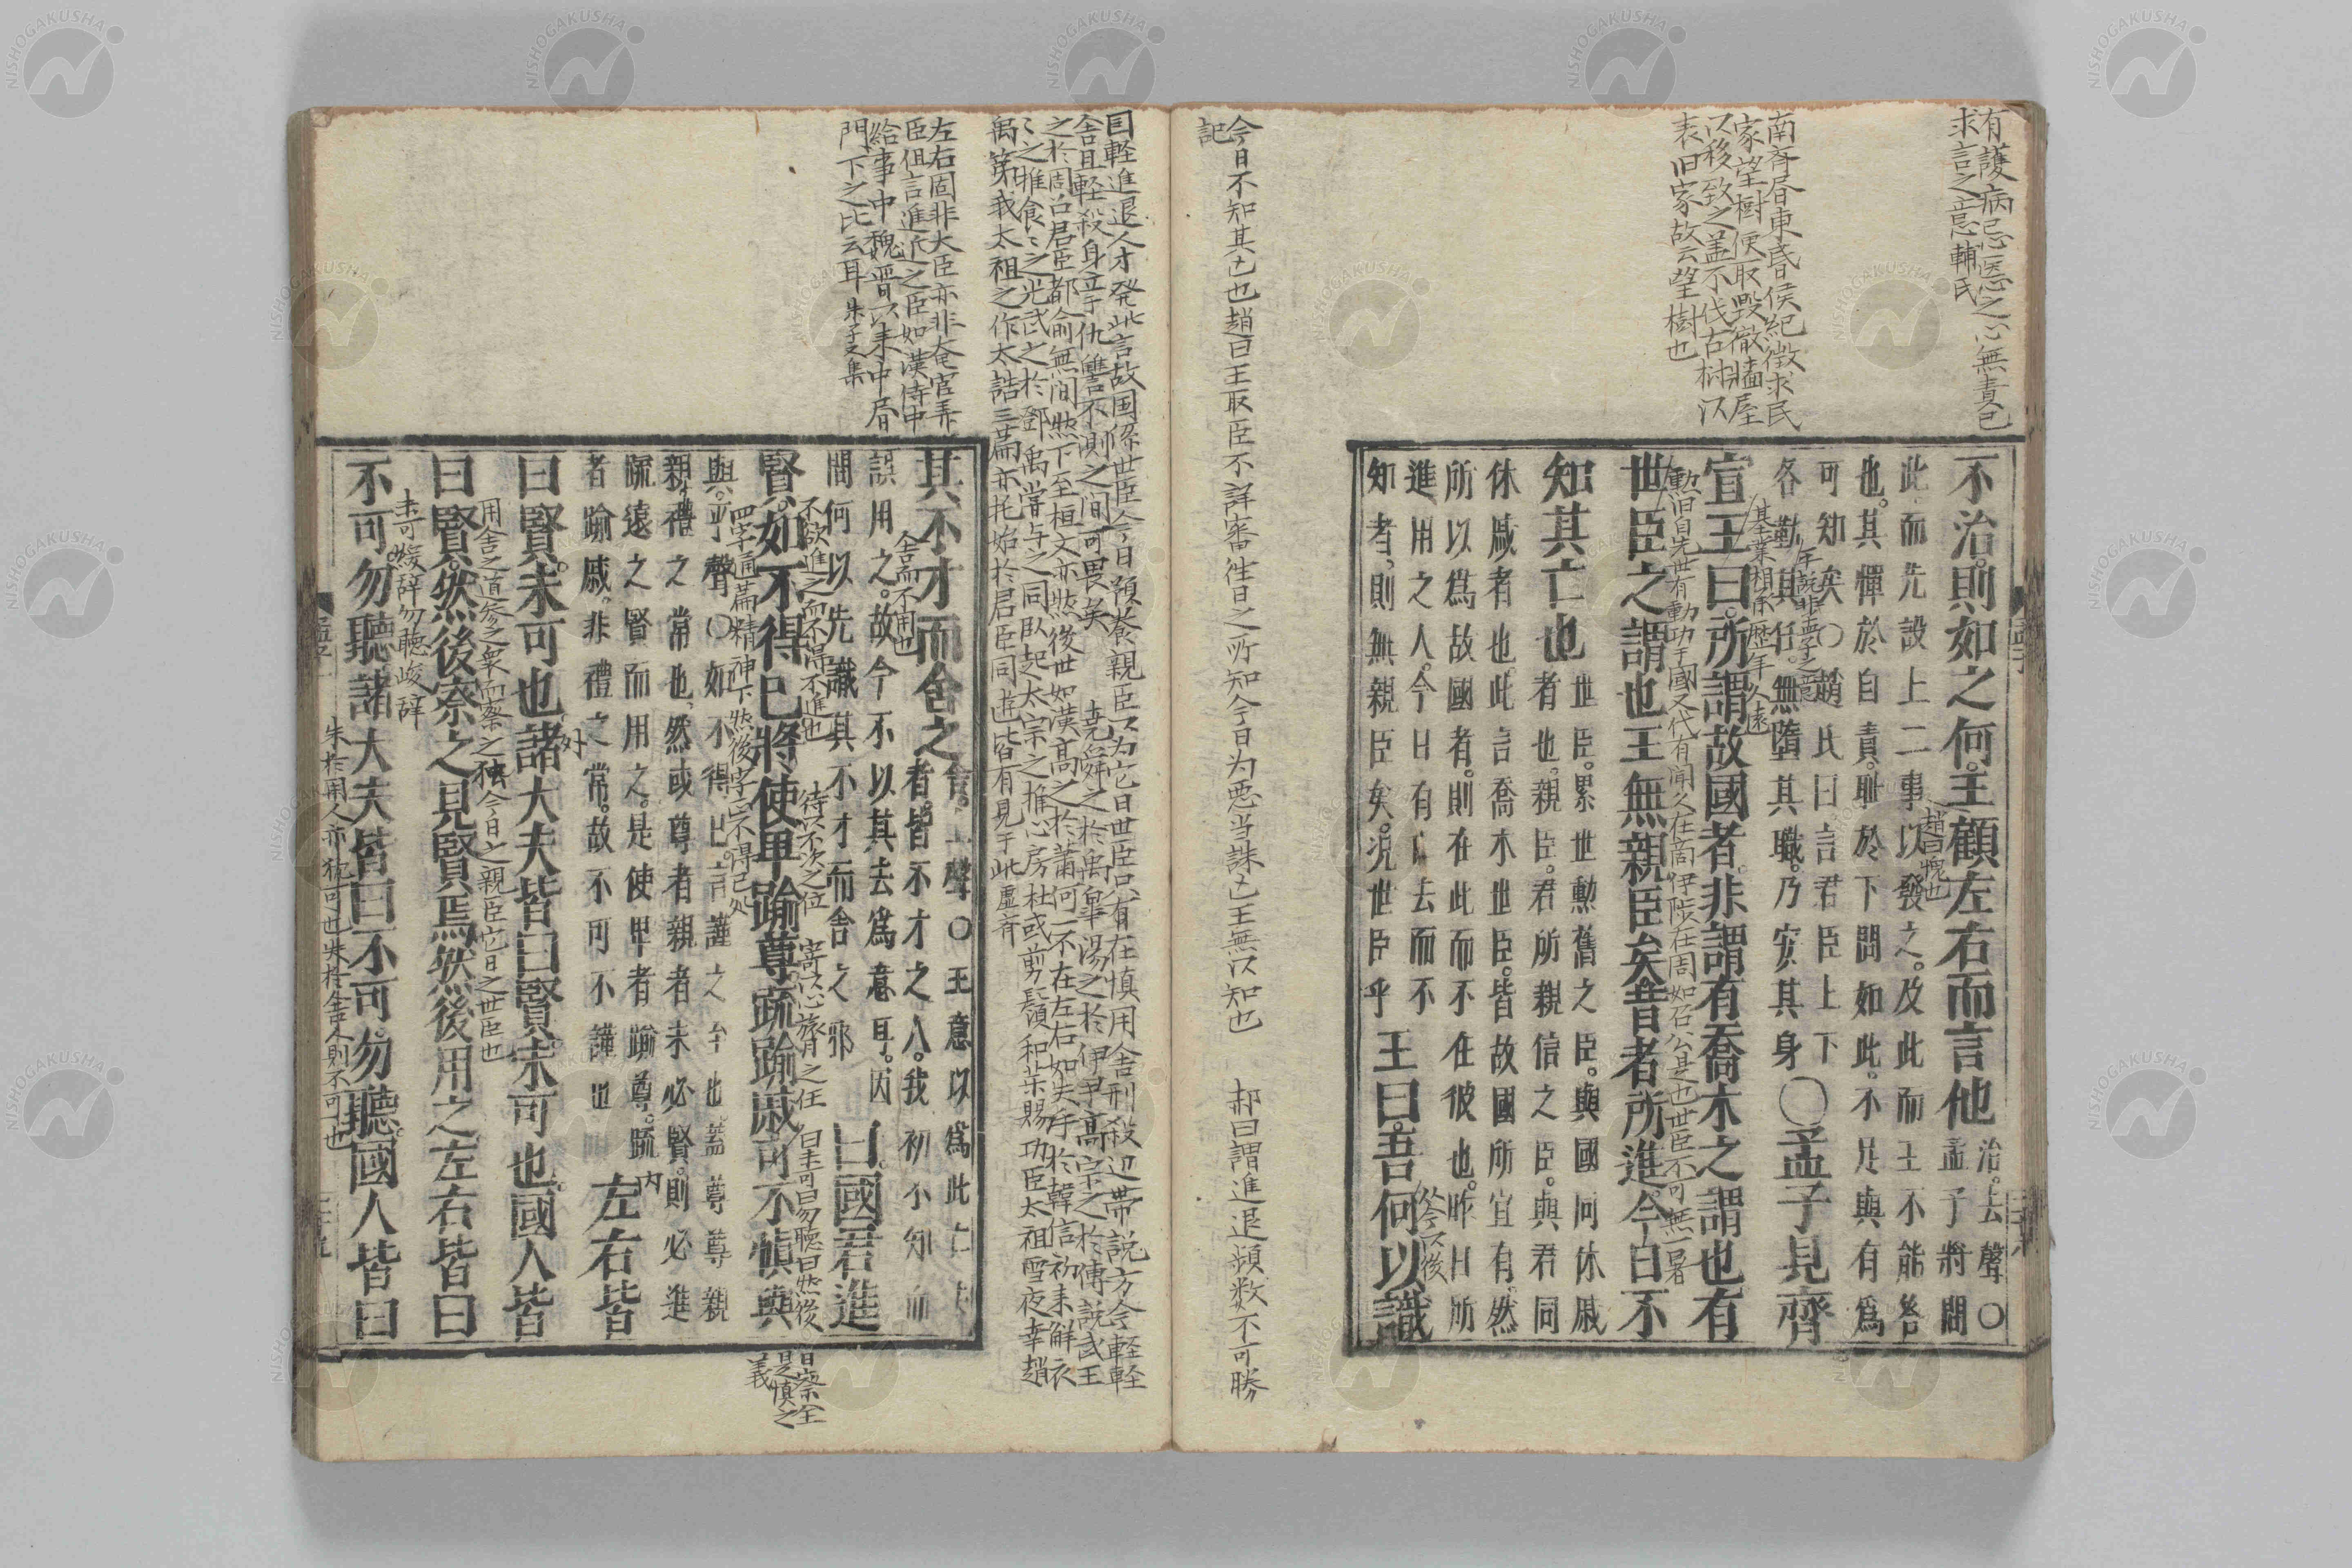 有護病忌醫之心無責己
求言之志輔氏
南齊書東昏侯紀徴求民
家望樹便取毀徹牆屋
以移致之盖不伐古樹以
表旧家故云望樹也
不治則如之何王顧左右而言他
治去聲〇
孟子將問
此而先設上二事以發之及此而王不能答
趙曰愧也
也其憚於自責恥於下問如此不足與有爲
可知矣〇趙氏曰言君臣上下
年説非孟子之意
各勤其任無墮其職乃安其身
〇孟子見齊
基業相承歴年久遠
宣王曰所謂故國者非謂有喬木之謂也有
勳旧自先世有勳功于國又代有聞人在商伊陟在周如召公其也世臣不可無一署
世臣之謂也王無親臣矣昔者所進今日不
知其亡也
世臣累世勳舊之臣與國同休戚
者也親臣君所親信之臣與君同
休戚者也此言喬木世臣皆故國所宜有然
所以爲故國者則在此而不在彼也昨日所
進用之人今日有亡去而不
知者則無親臣矣況世臣乎
王曰吾何以識
從今以後
今日不知其亡也趙曰王取臣不詳審往日之所知今日为惡当誅亡王無以知也 郝曰謂進退頻数不可勝
記
囙軽進退人才発此言故国係世臣今日預養親臣以为它日世臣只有在慎用舎刑殺辺帯説方今軽軽
舎且軽殺身立于仇讐不測之間可畏矣 堯舜之於禹皐湯之於伊尹高宗之於傅説武王
之於周召君臣都兪無間然下至桓文亦然後世如漢高之於蕭何一不在左右如失手於韓信初未解衣
〻之推食〻之光武之於鄧禹常与之同臥起太宗之推心房杜或剪鬚和薬賜功臣太祖雪夜幸趙
禹第我太祖之作太誥三篇亦托始於君臣同遊皆有見于此虚斉
左右固非大臣亦非奄官弄
臣但言進近之臣如漢侍中
給事中魏晋以来中書
門下之比云耳朱子文集
其不才而舍之
舍上聲〇王意以爲此亡去
者皆不才之人我初不知而
舎而不用也
誤用之故今不以其去爲意耳因
問何以先識其不才而舍之邪
曰國君進
不欲進之而不得不進也 待以不次之位 寄以心膂之任
曰未可曰勿聽曰然後
曰察全
是慎之
義
賢如不得已將使卑踰尊疏踰戚可不慎與
四字通篇精神下然後字亡不得已処
與平聲〇如不得已言謹之至也蓋尊尊親
親禮之常也然或尊者親者未必賢則必進
疏遠之賢而用之是使卑者踰尊疏
者踰戚非禮之常故不可不謹也
内
左右皆
外
曰賢未可也諸大夫皆曰賢未可也國人皆
用舎之道参之衆而察之独今日之親臣它日之世臣也
曰賢然後察之見賢焉然後用之左右皆曰
未可緩辞勿聽峻辞
不可勿聽諸大夫皆曰不可勿聽國人皆曰
朱於用人亦犹可也朱於舎人則不可也